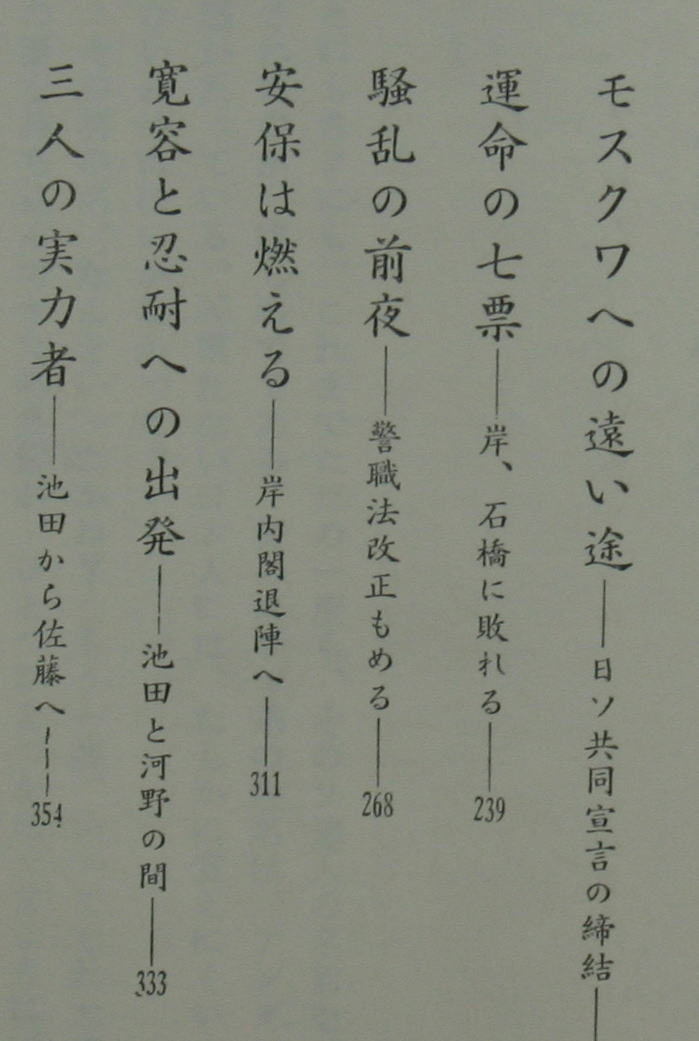 モスクワへの遠い途――日ソ共同宣言の締結――
運命の七票――岸、石橋に敗れる――239
騒乱の前夜――警職法改正もめる――268
安保は燃える――岸内閣退陣へ――311
寛容と忍耐への出発――池田と河野の間――333
三人の実力者――池田から佐藤へ――354